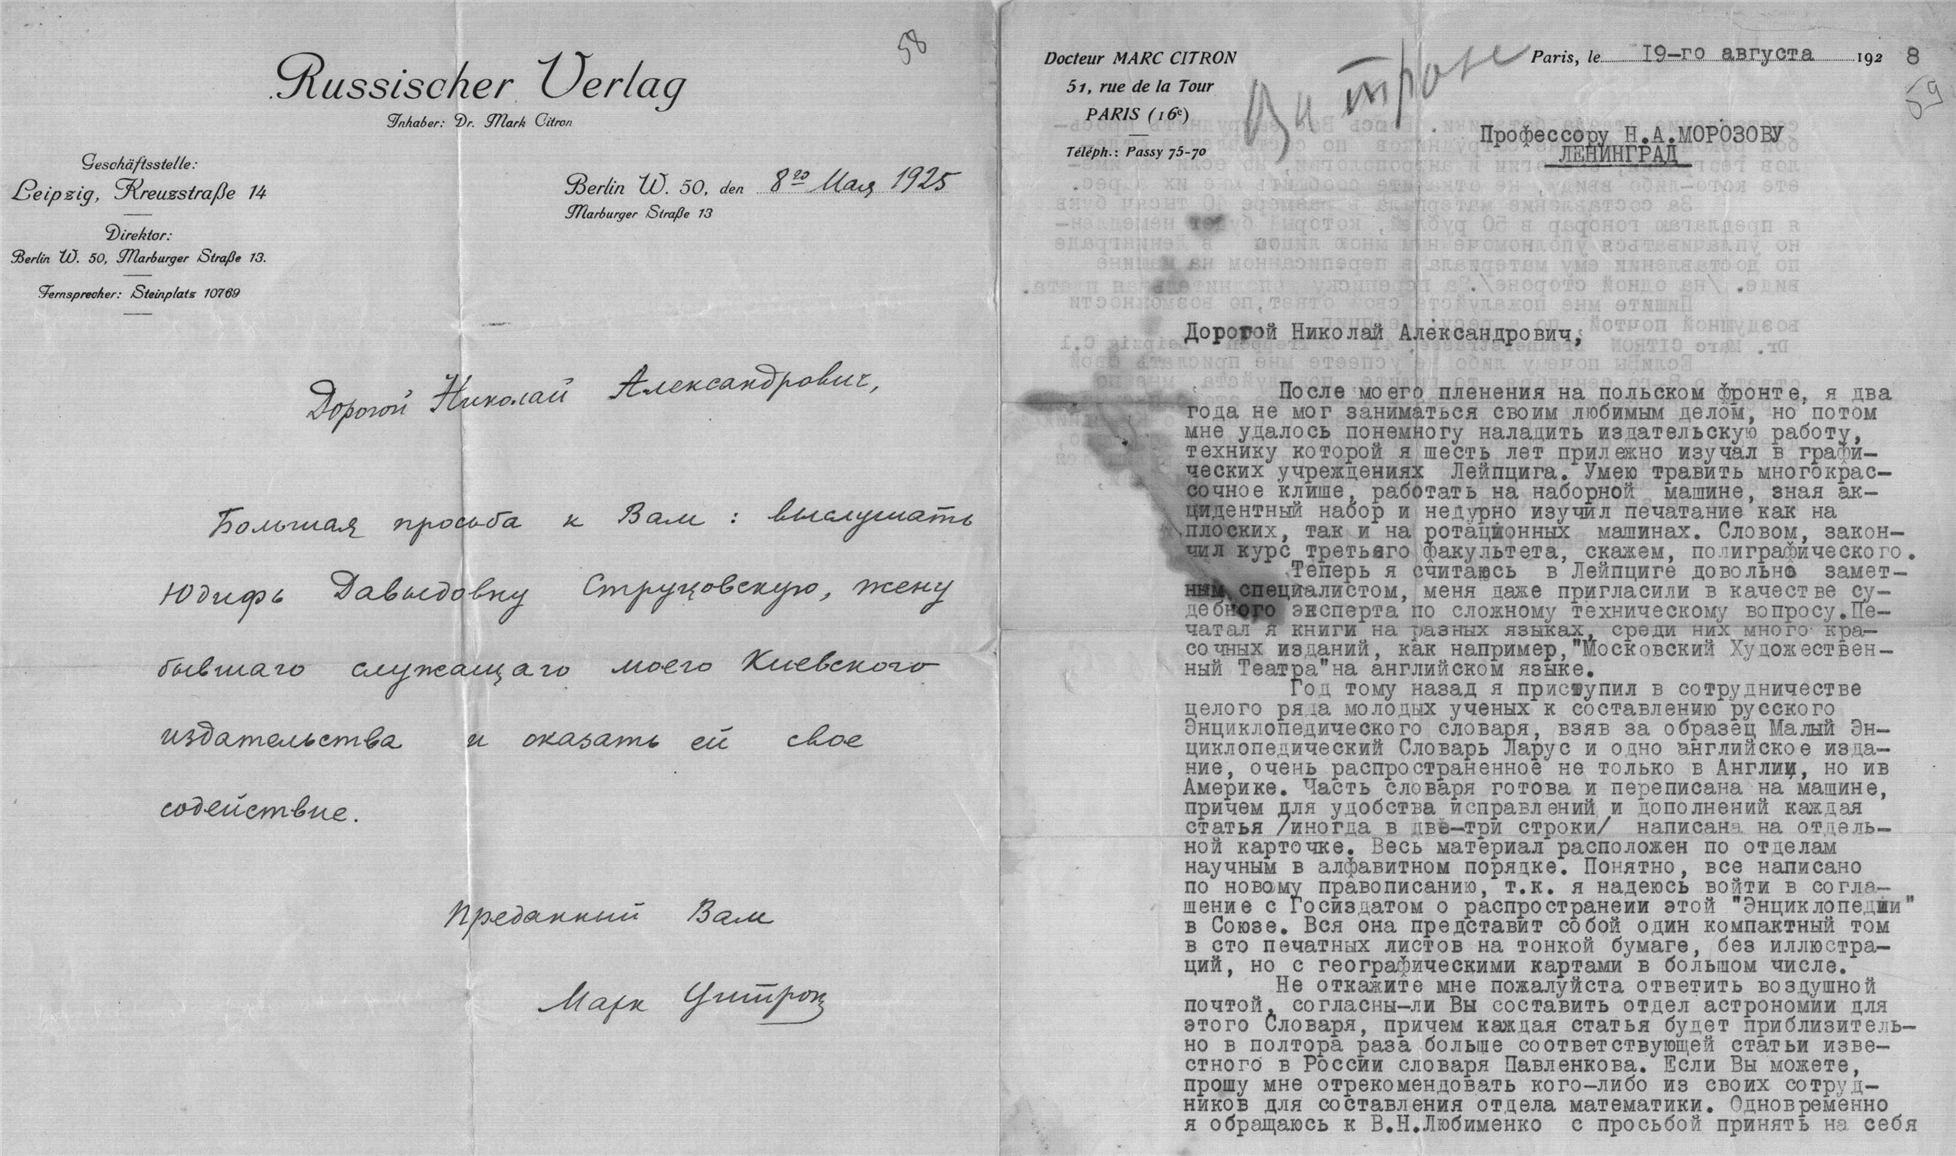 58
Russischer Verlag
Inhaber: Dr. Mark Citron
Geschäftsstelle:
Leipzig, Kreuzstraße 14
Direktor:
Berlin W. 50, Marburger Straße 13.
Fernsprecher: Steinplatz 10769
Berlin W. 50, den 8го Мая 1925
Marburger Straße 13
Дорогой Николай Александрович,
Большая просьба к Вам: выслушать
Юдифь Давыдовну Струцовскую, жену
бывшаго служащаго моего Киевского
издательства и оказать ей свое
содействие.
Преданный Вам
Марк Цитрон
Docteur MARC CITRON
51, rue de la Tour
PARIS (16e)
Téléph.: Passy 75-70
Paris, le 19-го августа 1928
59
Профессору Н.А.МОРОЗОВУ
ЛЕНИНГРАД
Дорогой Николай Александрович,
После моего пленения на польском фронте, я два
года не мог заниматься своим любимым делом, но потом
мне удалось понемногу наладить издательскую работу,
технику которой я шесть лет прилежно изучал в графи-
ческих учреждениях Лейпцига. Умею травить многокрас-
сочное клише, работать на наборной машине, зная ак-
цидентный набор и недурно изучил печатание как на
плоских, так и на ротационных машинах. Словом, закон-
чил курс третьяго факультета, скажем, полиграфического.
Теперь я считаюсь в Лейпциге довольно замет-
ным специалистом, меня даже пригласили в качестве су-
дебного эксперта по сложному техническому вопросу.Пе-
чатал я книги на разных языках, среди них много кра-
сочных изданий, как например,"Московский Художествен-
ный Театра"на английском языке.
Год тому назад я приступил в сотрудничестве
целого ряда молодых ученых к составлению русского
Энциклопедического словаря, взяв за образец Малый Эн-
циклопедический Словарь Ларус и одно английское изда-
ние, очень распространенное не только в Англии, но ив
Америке. Часть словаря готова и переписана на машине,
причем для удобства исправлений и дополнений каждая
статья /иногда в две-три строки/ написана на отдель-
ной карточке. Весь материал расположен по отделам
научным в алфавитном порядке. Понятно, все написано
по новому правописанию, т.к. я надеюсь войти в согла-
шение с Госиздатом о распространеии этой "Энциклопедии"
в Союзе. Вся она представит собой один компактный том
в сто печатных листов на тонкой бумаге, без иллюстра-
ций, но с географическими картами в большом числе.
Не откажите мне пожалуйста ответить воздушной
почтой, согласны-ли Вы составить отдел астрономии для
этого Словаря, причем каждая статья будет приблизитель-
но в полтора раза больше соответствующей статьи изве-
стного в России словаря Павленкова. Если Вы можете,
прошу мне отрекомендовать кого-либо из своих сотруд-
ников для составления отдела математики. Одновременно
я обращаюсь к В.Н.Любименко с просьбой принять на себя